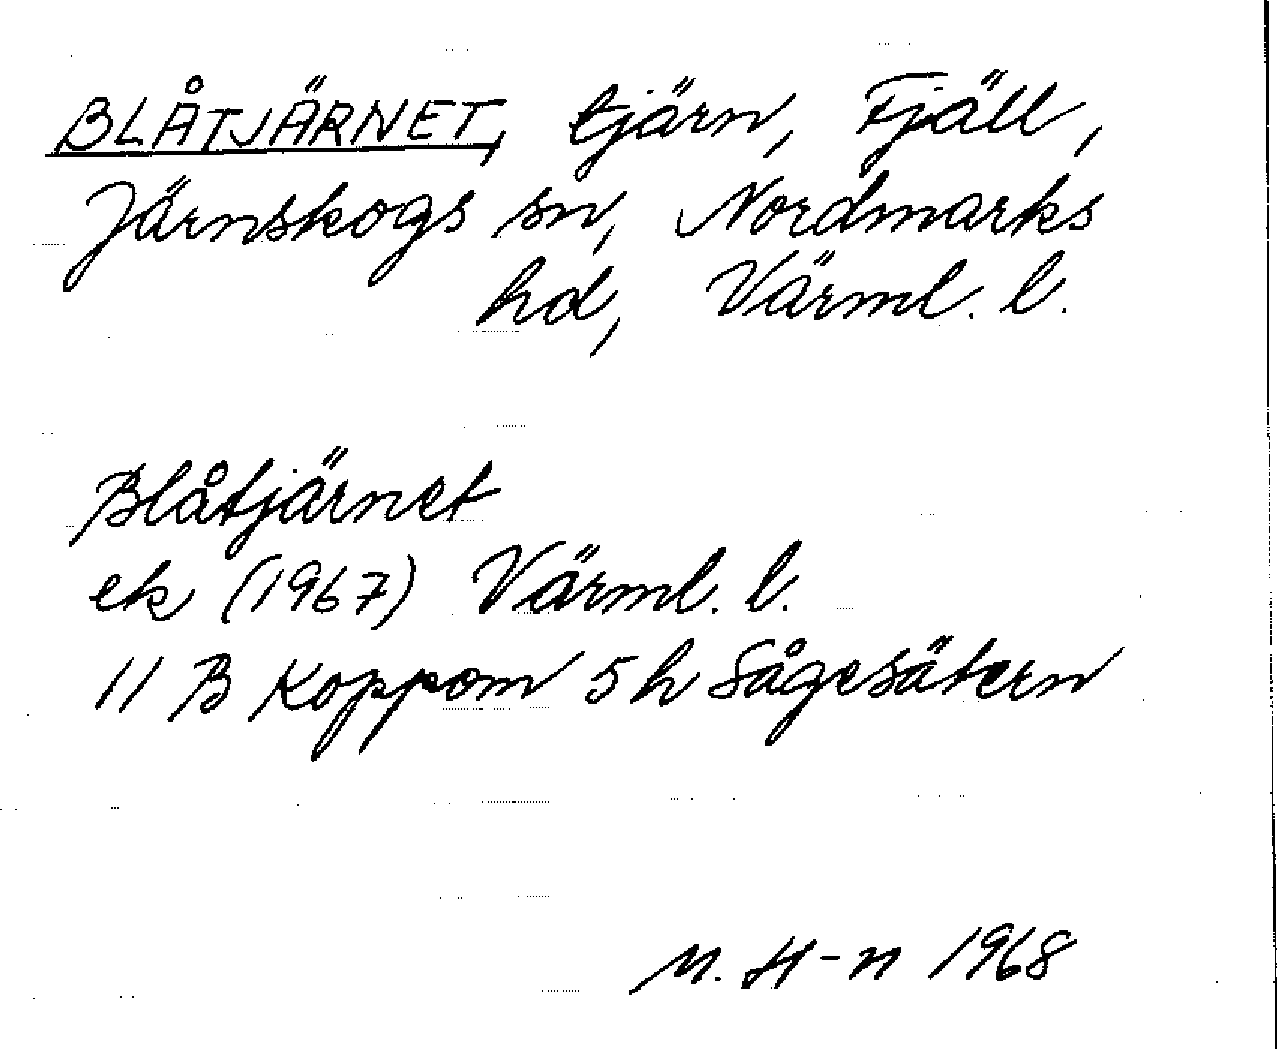 BLÅTJÄRNET, tjärn, Fjäll,
Järnskogs sn, Nordmarks
hd, Värml. l.
Blåtjärnet
ek (1967) Värml. l.
11 B Koppom 5 h Sågesätern
M. H-n 1968